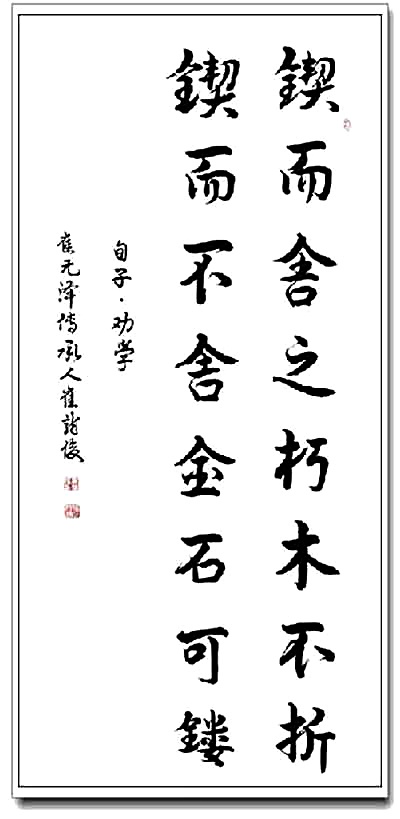 锲而舍之朽木不折
锲而不舍金石可镂
旬子·劝学
崔元泽傳承人崔俊